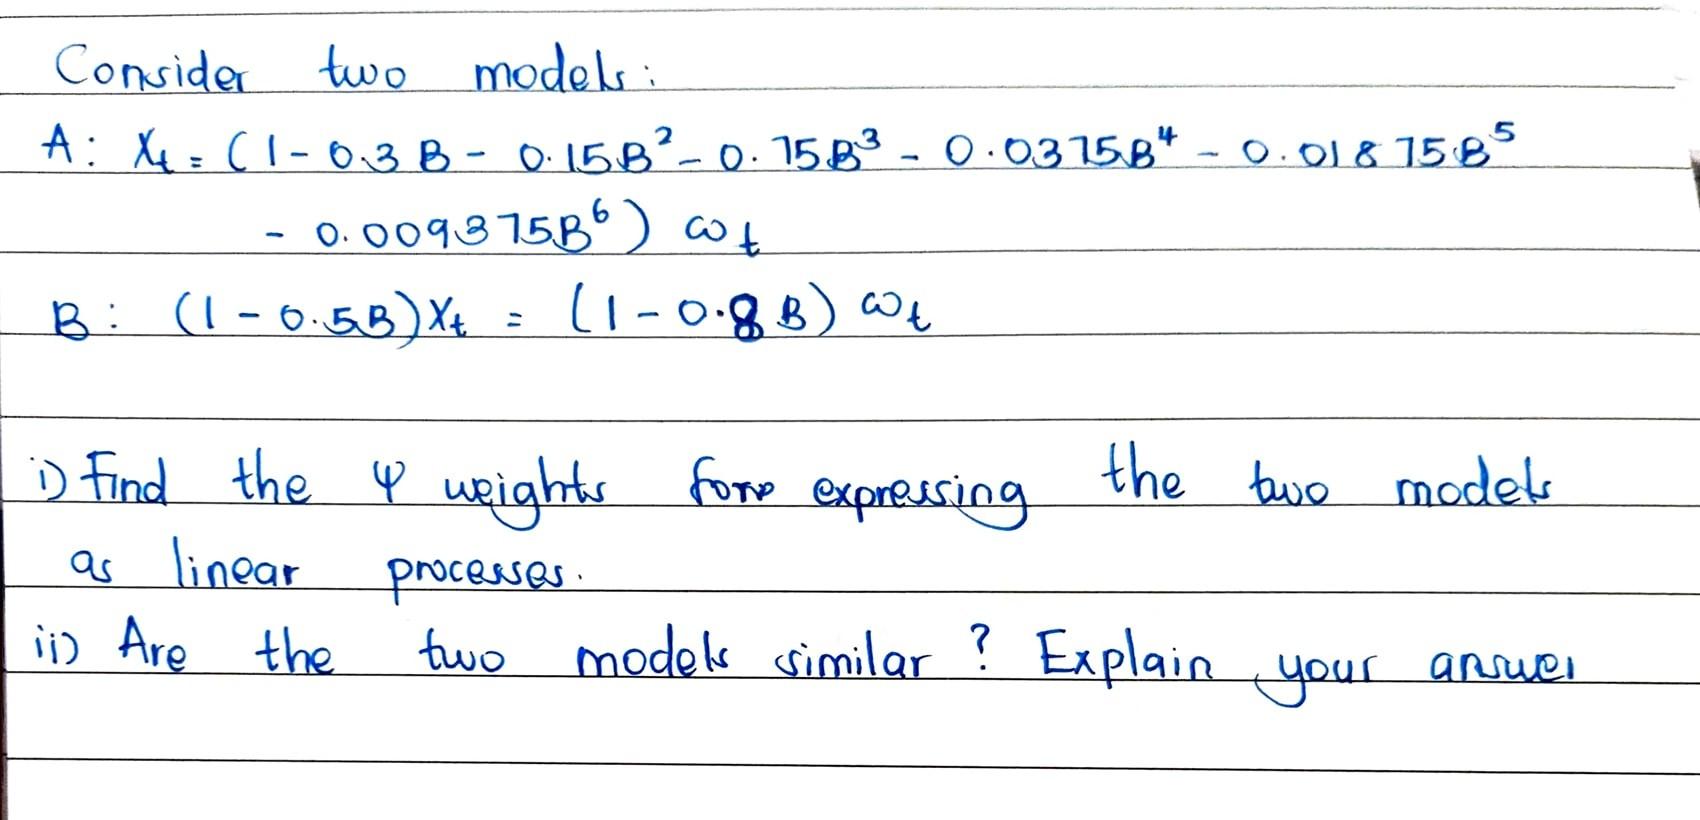 Consider two models:
A: Xt = (1 - 0.3B - 0.15B² - 0.75B³ - 0.0375B⁴ - 0.01875B⁵
- 0.009375B⁶) ωt
B: (1 - 0.5B)Xt = (1 - 0.8B) ωt
i) Find the ψ weights for expressing the two models
as linear processes.
ii) Are the two models similar? Explain your answer